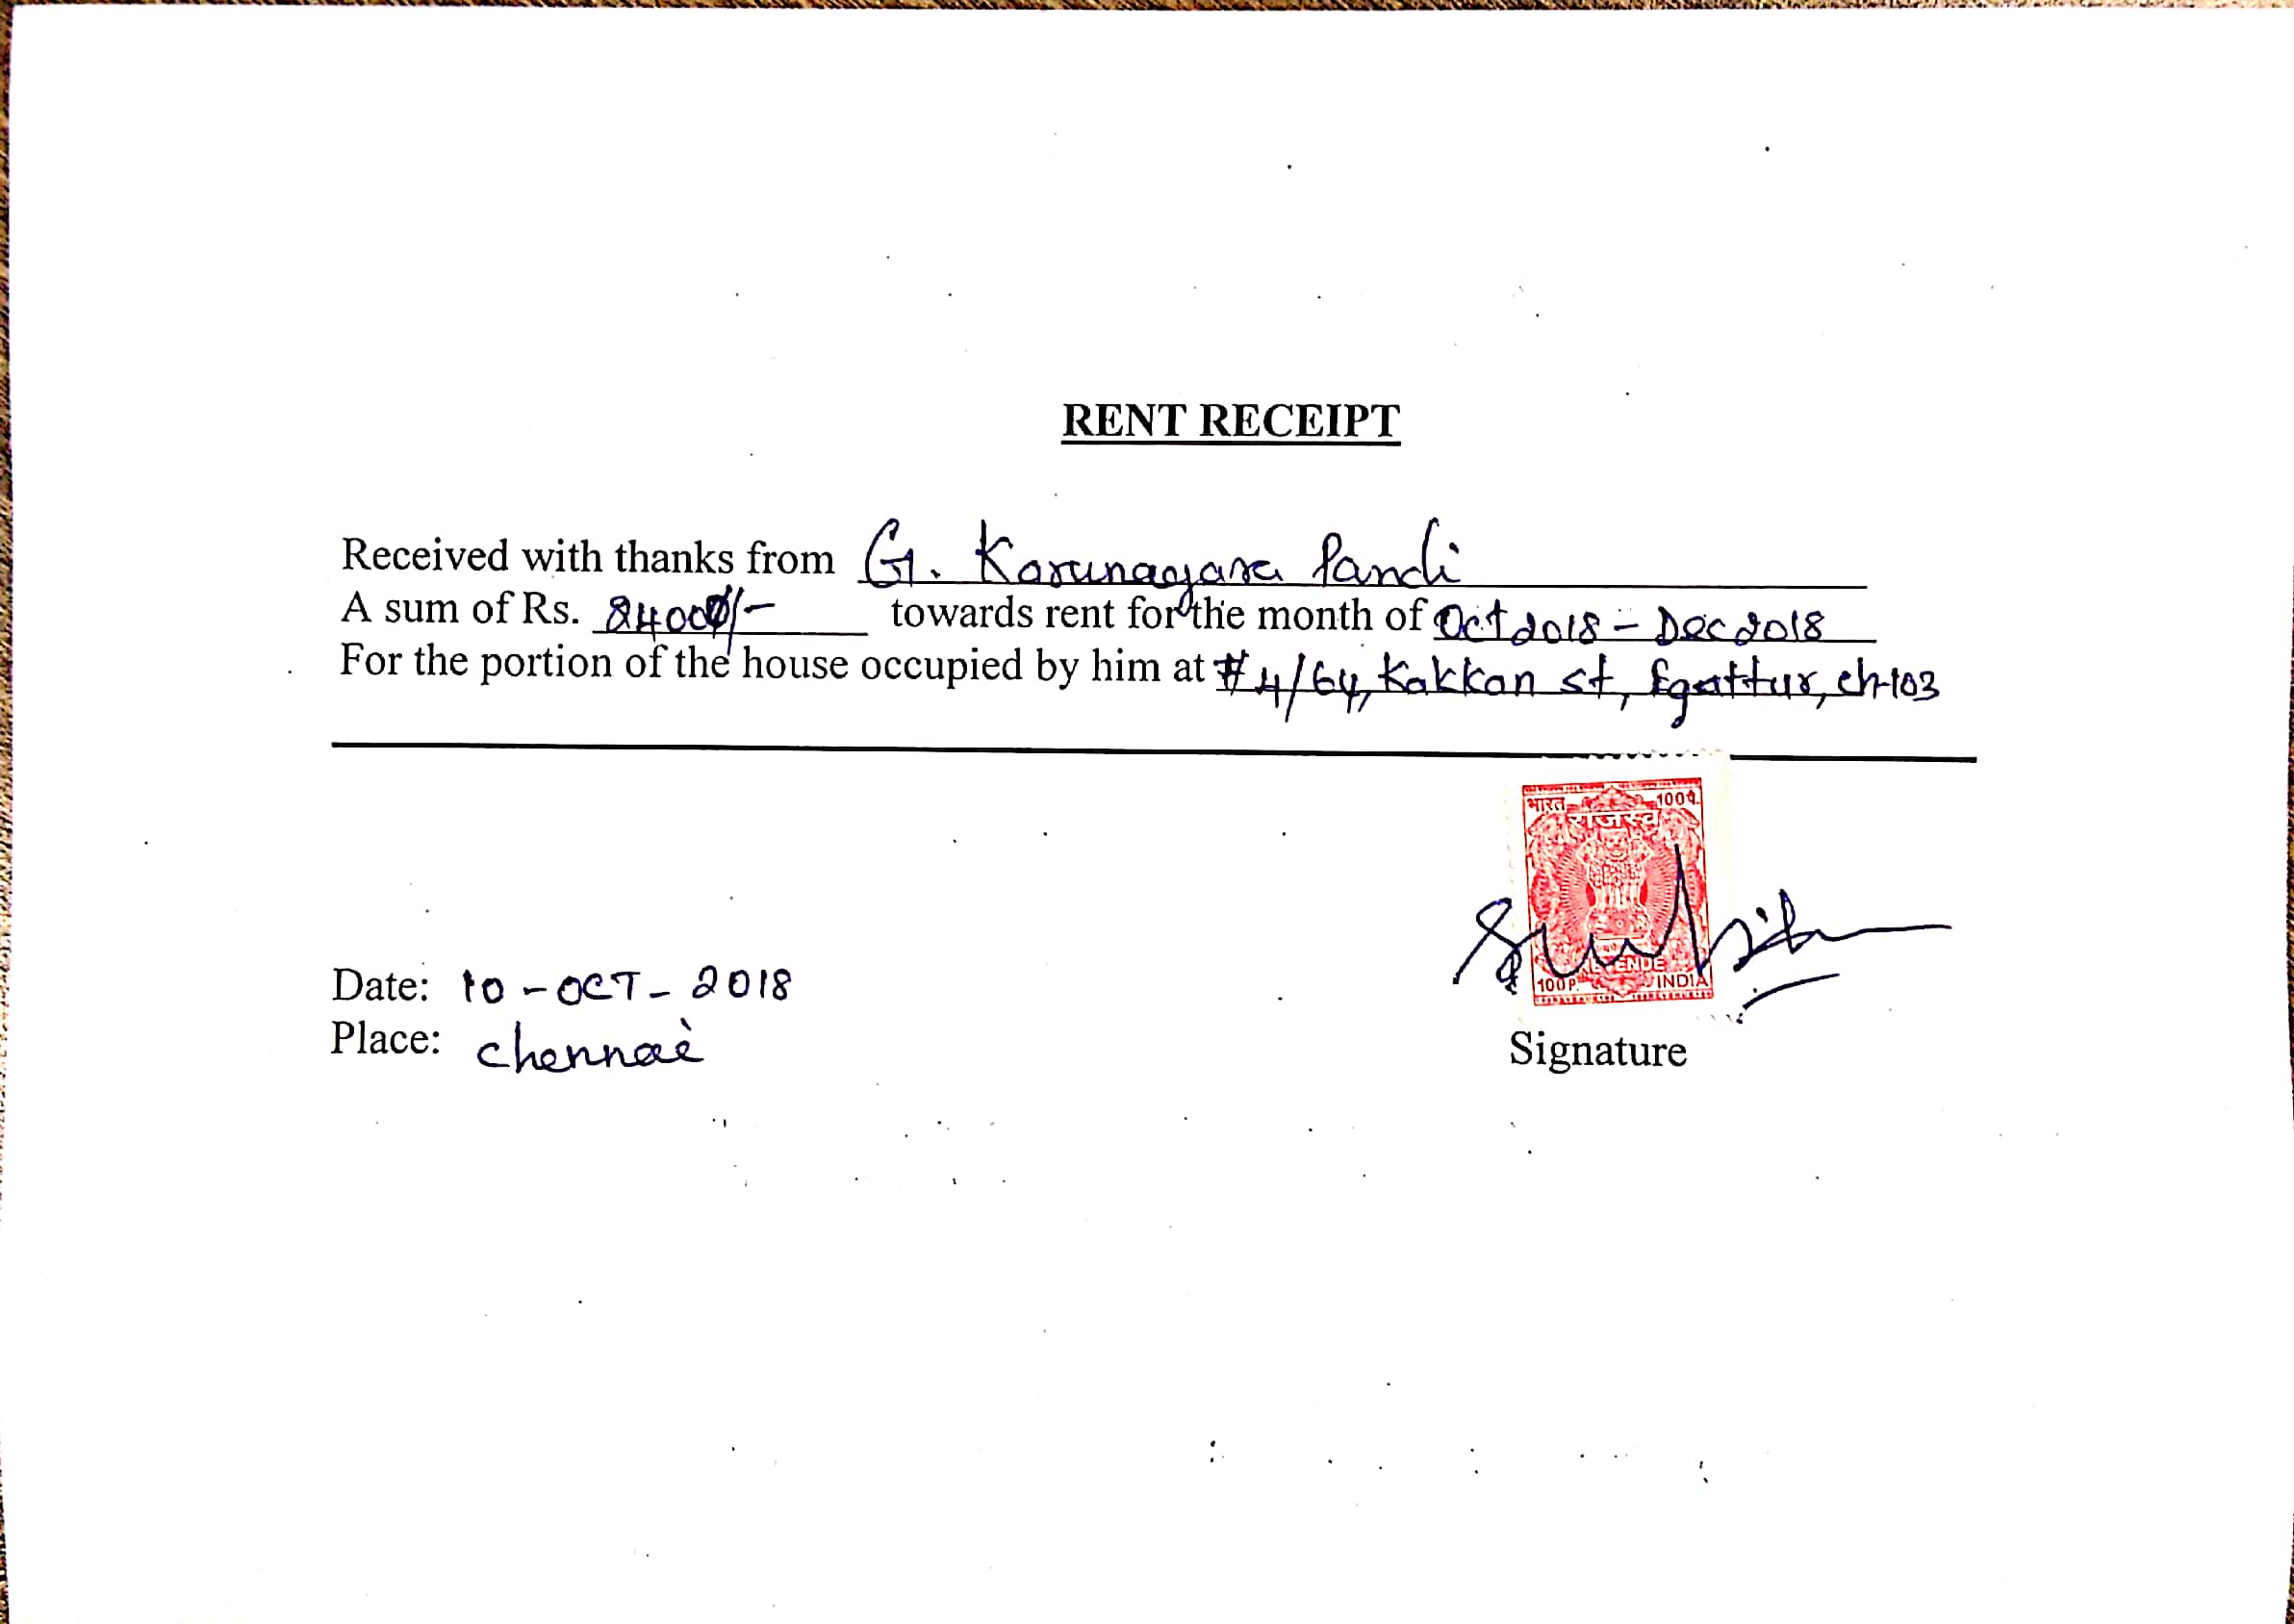 RENT RECEIPT
Received with thanks from G. Karunagara Pandi
A sum of Rs. 24000/- towards rent for the month of Oct 2018 - Dec 2018
For the portion of the house occupied by him at #4/64, Kakkan st, Egattur, ch-103
भारत 100प.
राजस्व
REVENUE
100 P. INDIA
Date: 10 - OCT - 2018
Place: Chennai
Signature